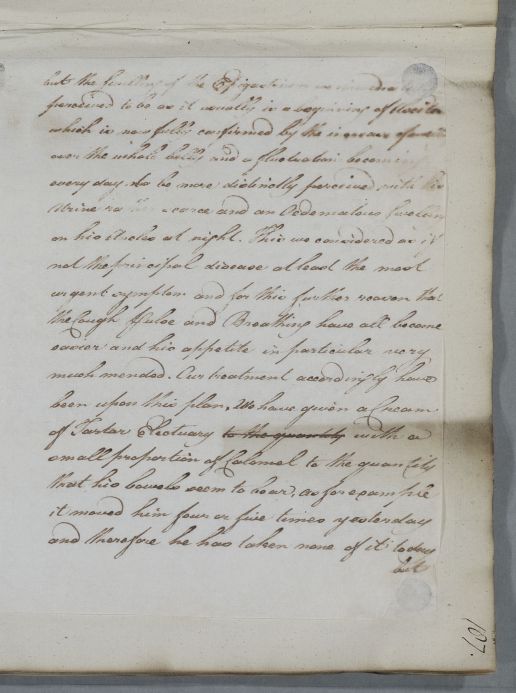 but the swelling of the Epigastrium we
perceived to be as it usually is a beginning of Ascites
which is now fully confirmed by the increase of
over the whole belly and a fluctuation becoming
every day to be more distinctly perceived with his
Urine scarce and an Oedematous swelling
on his Ancles at night. This we considered as if
not the principal disease at least the most
urgent symptom and for this further reason that
the Cough Pulse and Breathing have all become
easier and his appetite in particular very
much mended. Our treatment accordingly have
been upon this plan, We have given a Cream
of Tartar Electuary to the quantity with a
small proportion of Calomel to the quantity
that his bowels seem to bear, as for example
it moved him four or five times yesterday
and therefore he has taken none of it to day
but
107.